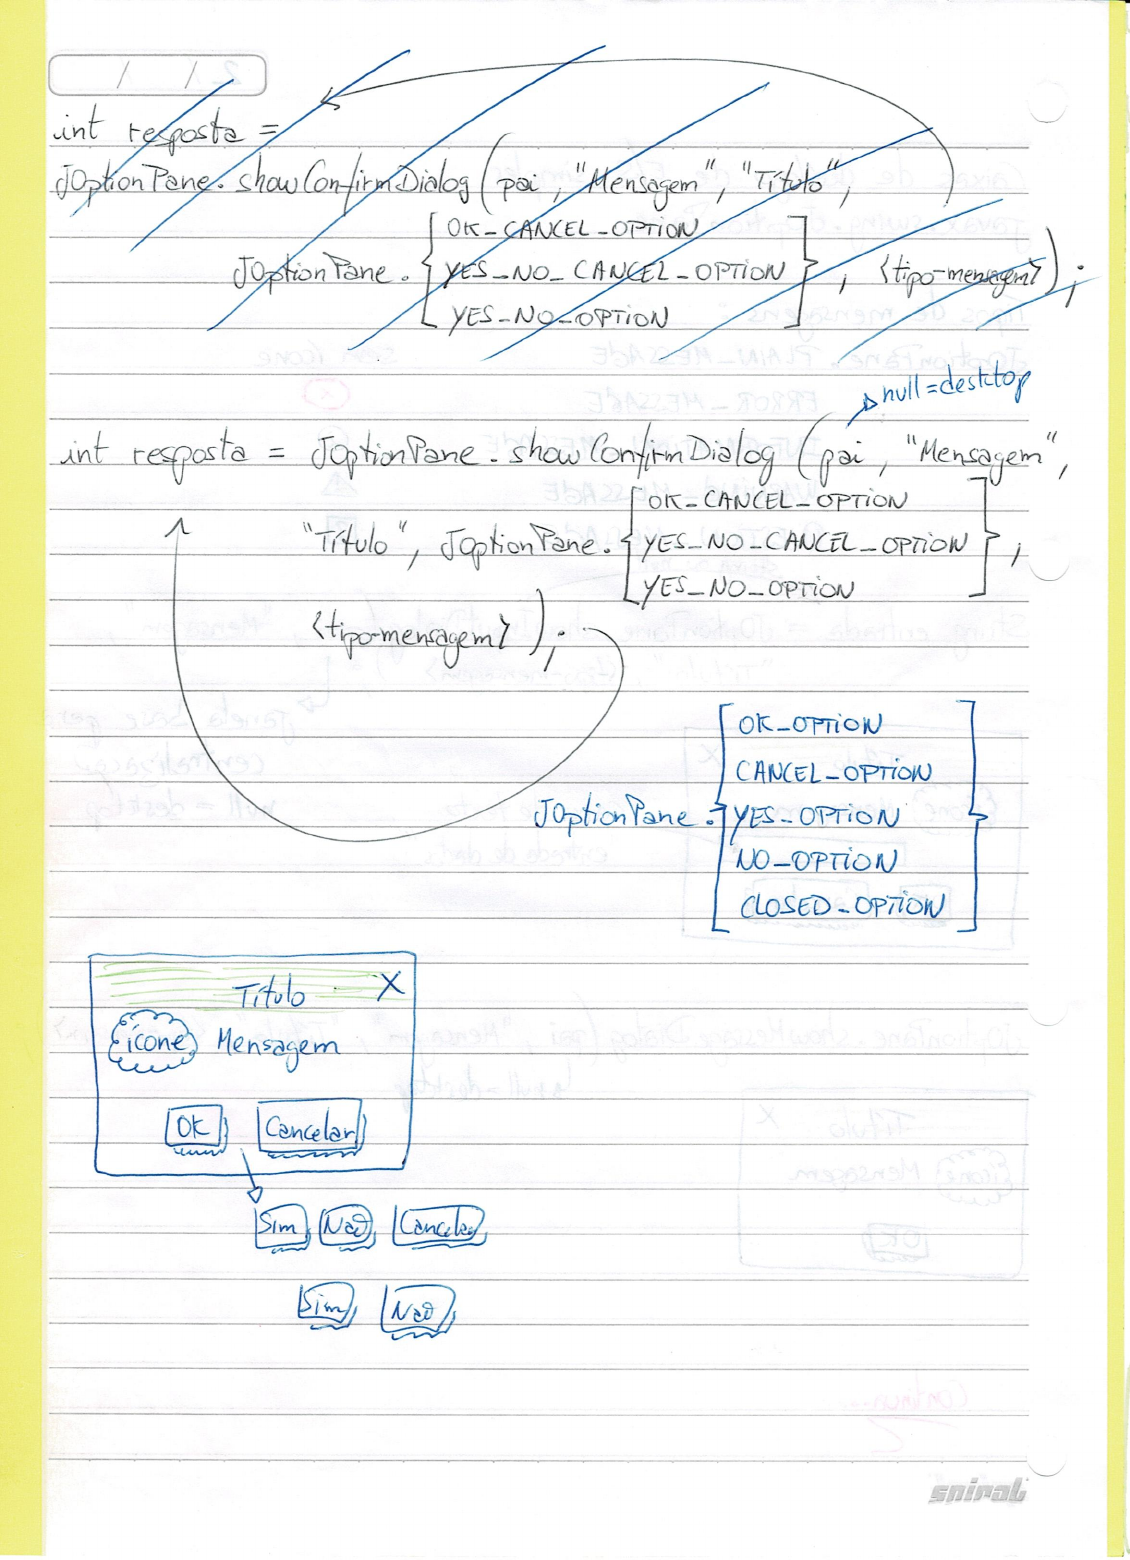 int resposta =
JOptionPane.showConfirmDialog(pai, "Mensagem", "Título",
OK_CANCEL_OPTION
JOptionPane. YES_NO_CANCEL_OPTION , <tipo-mensagem>);
YES_NO_OPTION
null=desktop
int resposta = JOptionPane.showConfirmDialog (pai, "Mensagem",
OK_CANCEL_OPTION
"Título", JOptionPane. YES_NO_CANCEL_OPTION ,
YES_NO_OPTION
<tipo-mensagem>);
OK_OPTION
CANCEL_OPTION
JOptionPane. YES_OPTION
NO_OPTION
CLOSED_OPTION
Título X
ícone Mensagem
OK Cancelar
Sim Não Cancelar
Sim Não
spiral